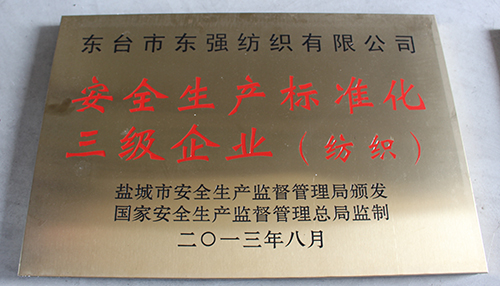 东台市东强纺织有限公司
安全生产标准化
三级企业（纺织）
盐城市安全生产监督管理局颁发
国家安全生产监督管理总局监制
二〇一三年八月